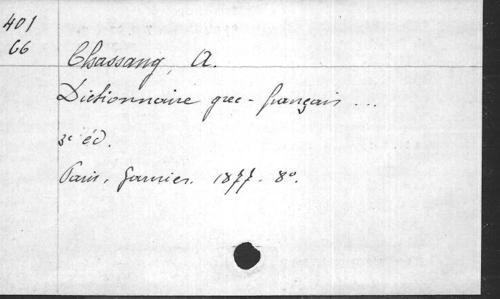 401
66
Chassang, A.
Dictionnaire grec-français ...
3e éd.
Paris, Garnier. 1877. 8o.